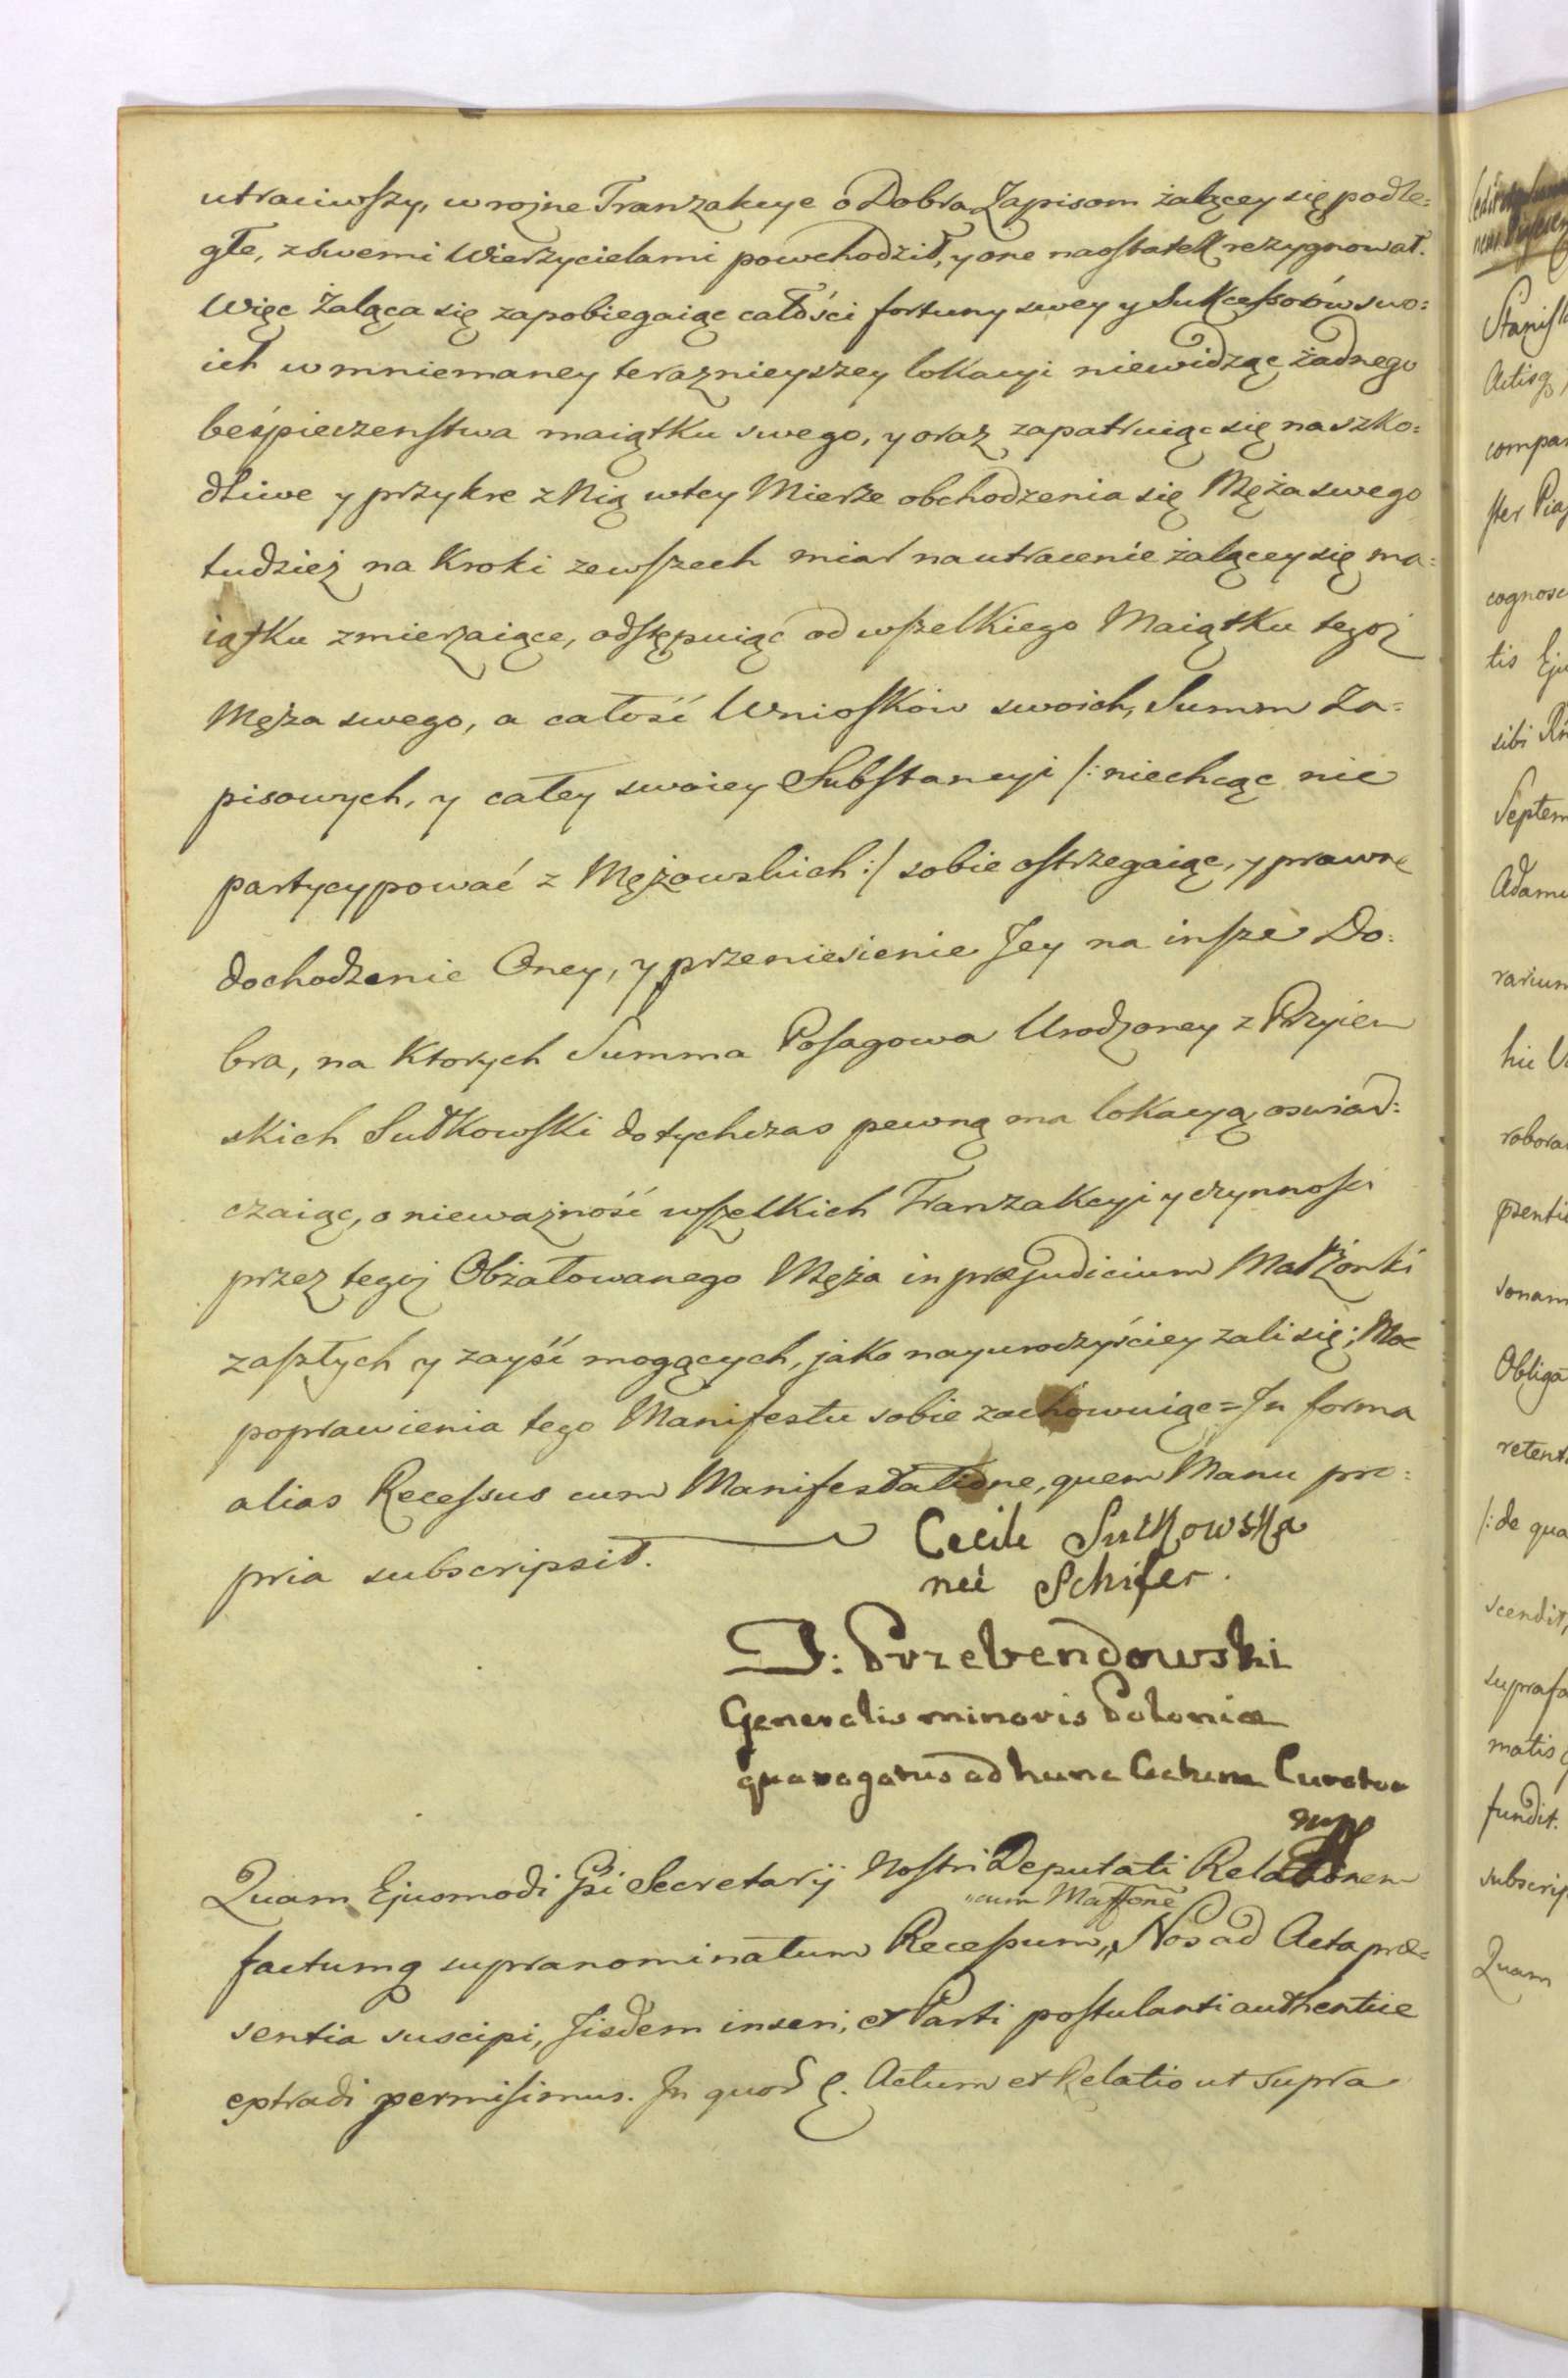 utraciwszy, w rożne Tranzakcye o Dobra Zapisom żalącey się podle:
głe, z swemi Wierzycielami powchodził, y one naostatek rezygnował.
Więc Żaląca się zapobiegaiąc całości fortuny swey y Sukcessorów swo:
ich w mniemaney teraznieyszey lokacyi niewidząc żadnego
beśpieczenstwa maiątku swego, y oraz zapatruiąc się na szko:
dliwe y przykre z Nią w tey Mierze obchodzenia się Męża swego
tudzież na Kroki zewszech miar na utracenie żalącey się ma:
iątku zmierzaiące, odstępuiąc od wszelkiego Maiątku tegoż
Męża swego, a całość Wniosków swoich, Summ Za:
pisowych, y całey swoiey Substancyi /: niechcąc nic
partycypować z Mężowskich :/ sobie ostrzegaiąc, y prawne
dochodzenie Oney, y przeniesienie Jey na insze Do:
bra, na Ktorych Summa Posagowa Urodzoney z Przyiem
skich Sułkowski dotychczas pewną ma lokacyą, oswiad:
czaiąc, o nieważność wszelkich Tranzakcyi y czynnosci
przez tegoż Obżałowanego Męża in præjudicium Małżonki
zaszłych y zayść mogących, jako nayuroczyściey żali się; Moc
poprawienia tego Manifestu sobie zachowuiąc = In forma
alias Recessus cum Manifestatione, quem Manu pro:
pria subscripsit.
Cecile Sułkowska
neé Schifer.
J: Przebendowski
Generalis minoris Poloniæ
qua rogatus ad hunc Actum Curator
mpp
Quam Ejusmodi Gsi Secretarij Nostri Deputati Relationem
factumq supranominatum Recessum, „cum Maffone Nos ad Acta præ:
sentia suscipi, Jisdem inseri, et Parti postulanti authentice
extradi permisimus. In quod &. Actum et Relatio ut supra